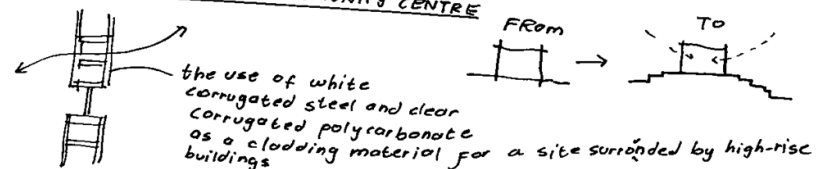 CENTRE
FROM
TO
the use of white
corrugated steel and clear
corrugated polycarbonate
as a cladding material for a site surrounded by high-rise
buildings